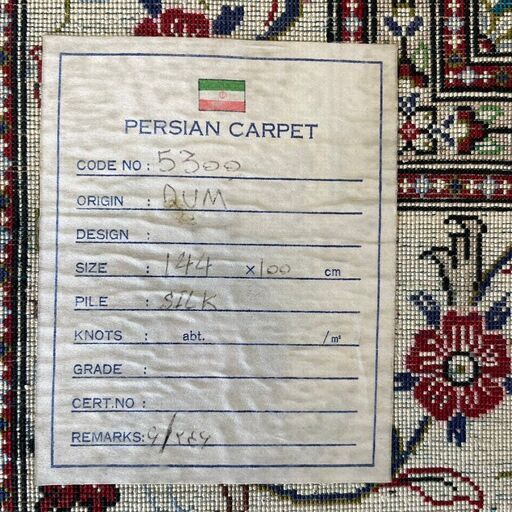 PERSIAN CARPET
CODE NO : 5300
ORIGIN : QUM
DESIGN :
SIZE : 144 × 100 cm
PILE : SILK
KNOTS : abt. /m²
GRADE :
CERT.NO :
REMARKS: